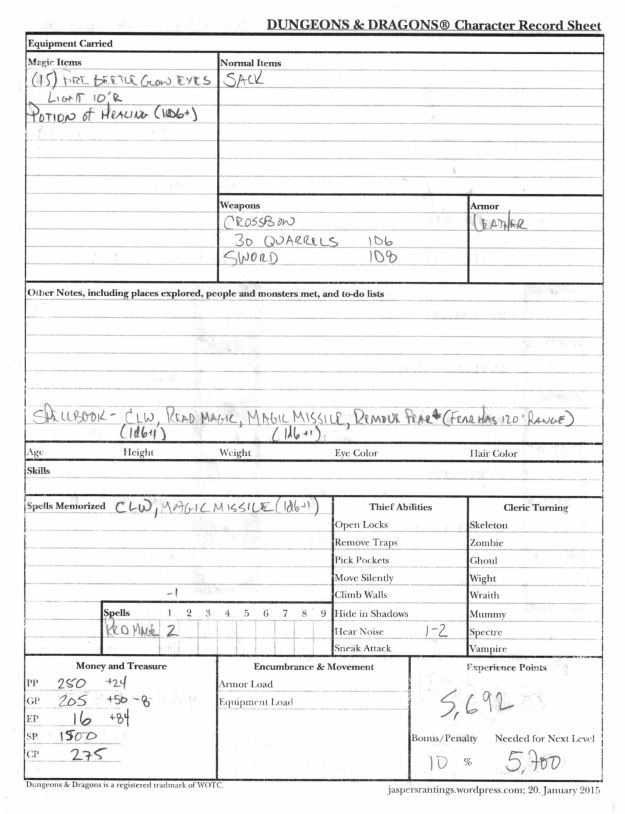 DUNGEONS & DRAGONS® Character Record Sheet
Equipment Carried
Magic Items
(15) FIRE BEETLE GLOW EYES
LIGHT 10'R
POTION of HEALING (1D6+)
Normal Items
SACK
Weapons
CROSSBOW
30 QUARRELS 1D6
SWORD 1D8
Armor
LEATHER
Other Notes, including places explored, people and monsters met, and to-do lists
SPELLBOOK - CLW, READ MAGIC, MAGIC MISSILE, REMOVE FEAR (FEAR HAS 120' RANGE)
(1d6+1) (1d6+1)
Age Height Weight Eye Color Hair Color
Skills
Spells Memorized CLW, MAGIC MISSILE (1d6+1)
-1
Spells 1 2 3 4 5 6 7 8 9
RED MAGE 2
Thief Abilities
Open Locks
Remove Traps
Pick Pockets
Move Silently
Climb Walls
Hide in Shadows
Hear Noise 1-2
Sneak Attack
Cleric Turning
Skeleton
Zombie
Ghoul
Wight
Wraith
Mummy
Spectre
Vampire
Money and Treasure
PP 250 +24
GP 205 +50 -8
EP 16 +84
SP 1500
CP 275
Encumbrance & Movement
Armor Load
Equipment Load
Experience Points
5,692
Bonus/Penalty Needed for Next Level
10 % 5,700
Dungeons & Dragons is a registered tradmark of WOTC.
jaspersrantings.wordpress.com; 20. January 2015